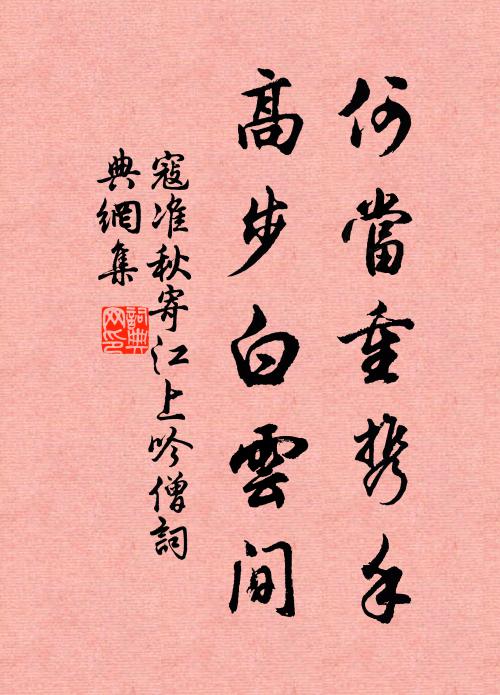 何當重携手
高步白雲間
寇准秋寄江上吟僧詞
典網集
詞典网印